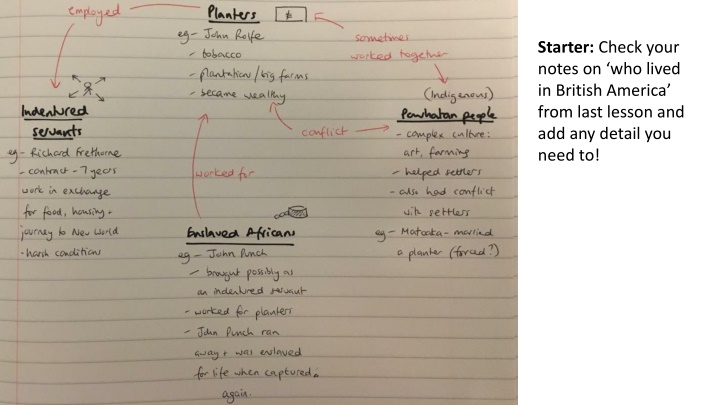 employed
Planters
eg - John Rolfe
- tobacco
- plantation/big farms
- became wealthy
sometimes
worked together
Indentured
servants
eg - Richard Frethorne
- contract - 7 years
work in exchange
for food, housing +
journey to New World
- harsh conditions
(Indigenous)
Powhatan people
- complex culture:
art, farming
- helped settlers
- also had conflict
with settlers
eg - Matoaka - married
a planter (forced?)
conflict
worked for
Enslaved Africans
eg - John Punch
- brought possibly as
an indentured servant
- worked for planters
- John Punch ran
away + was enslaved
for life when captured
again.
Starter: Check your
notes on ‘who lived
in British America’
from last lesson and
add any detail you
need to!